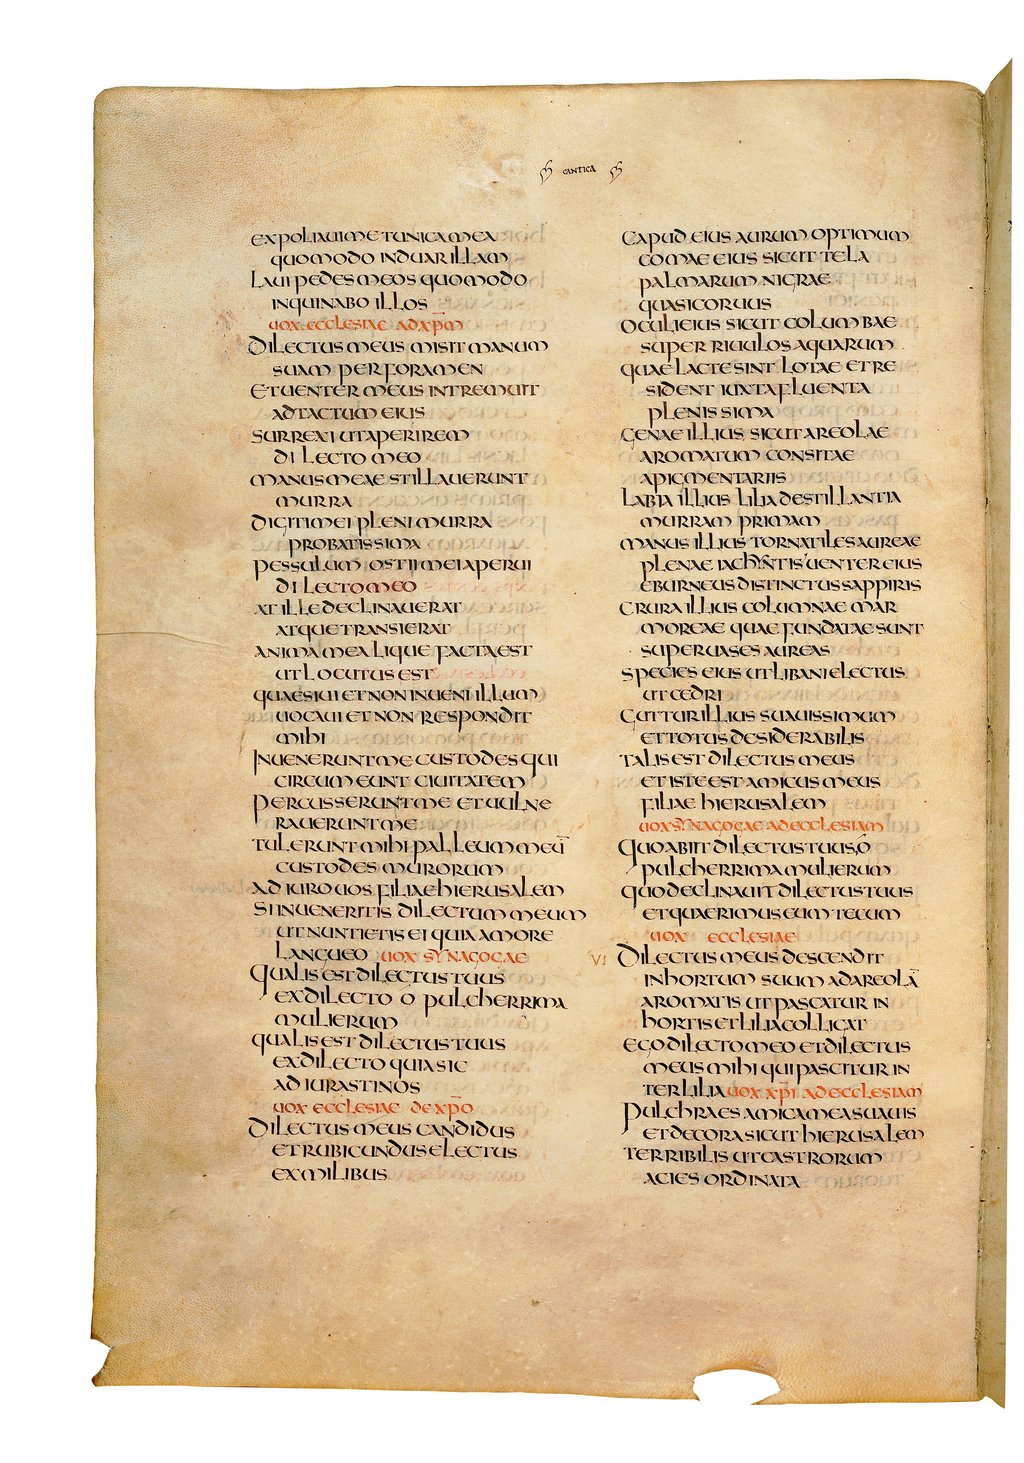 CANTICA
EXPOLIAUI ME TUNICA MEA
QUOMODO INDUAR ILLAM
LAUI PEDES MEOS QUOMODO
INQUINABO ILLOS
UOX ECCLESIAE AD XP̄M
DILECTUS MEUS MISIT MANUM
SUAM PER FORAMEN
ET UENTER MEUS INTREMUIT
AD TACTUM EIUS
SURREXI UT APERIREM
DILECTO MEO
MANUS MEAE STILLAUERUNT
MURRA
DIGITI MEI PLENI MURRA
PROBATISSIMA
PESSULUM OSTII MEI APERUI
DILECTO MEO
AT ILLE DECLINAUERAT
ATQUE TRANSIERAT
ANIMA MEA LIQUEFACTA EST
UT LOCUTUS EST
QUAESIUI ET NON INUENI ILLUM
UOCAUI ET NON RESPONDIT
MIHI
INUENERUNT ME CUSTODES QUI
CIRCUMEUNT CIUITATEM
PERCUSSERUNT ME ET UULNE
RAUERUNT ME
TULERUNT MIHI PALLEUM MEŪ
CUSTODES MURORUM
ADIURO UOS FILIAE HIERUSALEM
SI INUENERITIS DILECTUM MEUM
UT NUNTIETIS EI QUIA AMORE
LANGUEO UOX SYNAGOGAE
QUALIS EST DILECTUS TUUS
EX DILECTO O PULCHERRIMA
MULIERUM
QUALIS EST DILECTUS TUUS
EX DILECTO QUIA SIC
ADIURASTI NOS
UOX ECCLESIAE DE XP̄O
DILECTUS MEUS CANDIDUS
ET RUBICUNDUS ELECTUS
EX MILIBUS
CAPUD EIUS AURUM OPTIMUM
COMAE EIUS SICUT TELA
PALMARUM NIGRAE
QUASI CORUUS
OCULI EIUS SICUT COLUMBAE
SUPER RIUULOS AQUARUM
QUAE LACTE SINT LOTAE ET RE
SIDENT IUXTA FLUENTA
PLENISSIMA
GENAE ILLIUS SICUT AREOLAE
AROMATUM CONSITAE
A PIGMENTARIIS
LABIA ILLIUS LILIA DESTILLANTIA
MURRAM PRIMAM
MANUS ILLIUS TORNATILES AUREAE
PLENAE IACHYNTIS UENTER EIUS
EBURNEUS DISTINCTUS SAPPIRIS
CRURA ILLIUS COLUMNAE MAR
MOREAE QUAE FUNDATAE SUNT
SUPER UASES AUREAS
SPECIES EIUS UT LIBANI ELECTUS
UT CEDRI
GUTTUR ILLIUS SUAUISSIMUM
ET TOTUS DESIDERABILIS
TALIS EST DILECTUS MEUS
ET ISTE EST AMICUS MEUS
FILIAE HIERUSALEM
UOX SYNAGOGAE AD ECCLESIAM
QUO ABIIT DILECTUS TUUS O
PULCHERRIMA MULIERUM
QUO DECLINAUIT DILECTUS TUUS
ET QUAERIMUS EUM TECUM
UOX ECCLESIAE
VI DILECTUS MEUS DESCENDIT
IN HORTUM SUUM AD AREOLĀ
AROMATIS UT PASCATUR IN
HORTIS ET LILIA COLLIGAT
EGO DILECTO MEO ET DILECTUS
MEUS MIHI QUI PASCITUR IN
TER LILIA UOX XP̄I AD ECCLESIAM
PULCHRA ES AMICA MEA SUAUIS
ET DECORA SICUT HIERUSALEM
TERRIBILIS UT CASTRORUM
ACIES ORDINATA